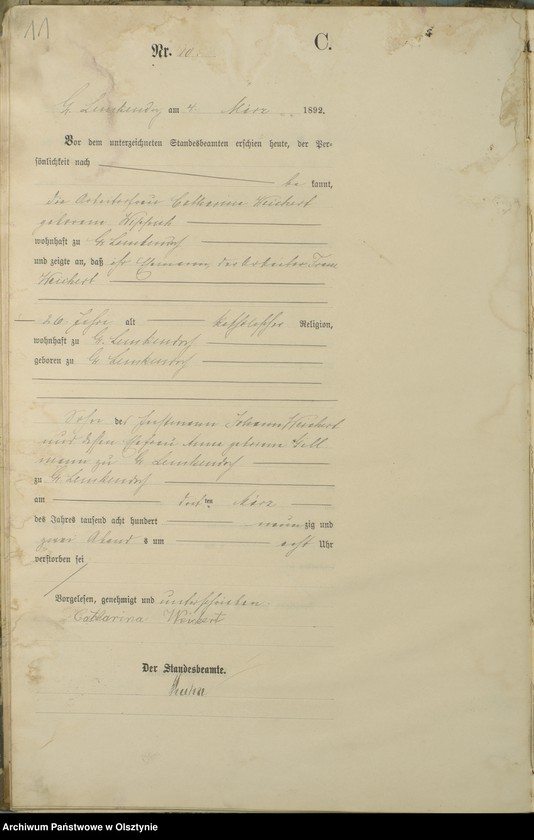 11
C.
Nr. 10.
Gr. Lemkendorf am 4 März 1892.
Vor dem unterzeichneten Standesbeamten erschien heute, der Per-
sönlichkeit nach
be kannt,
die Catharina Weichert
geborene
wohnhaft zu Gr Lemkendorf
und zeigte an, daß ihr Ehemann, der Arbeiter Franz
Weichert
Jahre alt katholischer Religion,
wohnhaft zu Gr. Lemkendorf
geboren zu Gr Lemkendorf
Sohn des Johann Weichert
und dessen Ehefrau Anna geborene
zu Gr Lemkendorf
zu Gr. Lemkendorf
am ten März
des Jahres tausend acht hundert neun zig und
zwei Abend s um acht Uhr
verstorben sei
Vorgelesen, genehmigt und unterschrieben
Catharina Weichert
Der Standesbeamte.
Archiwum Państwowe w Olsztynie